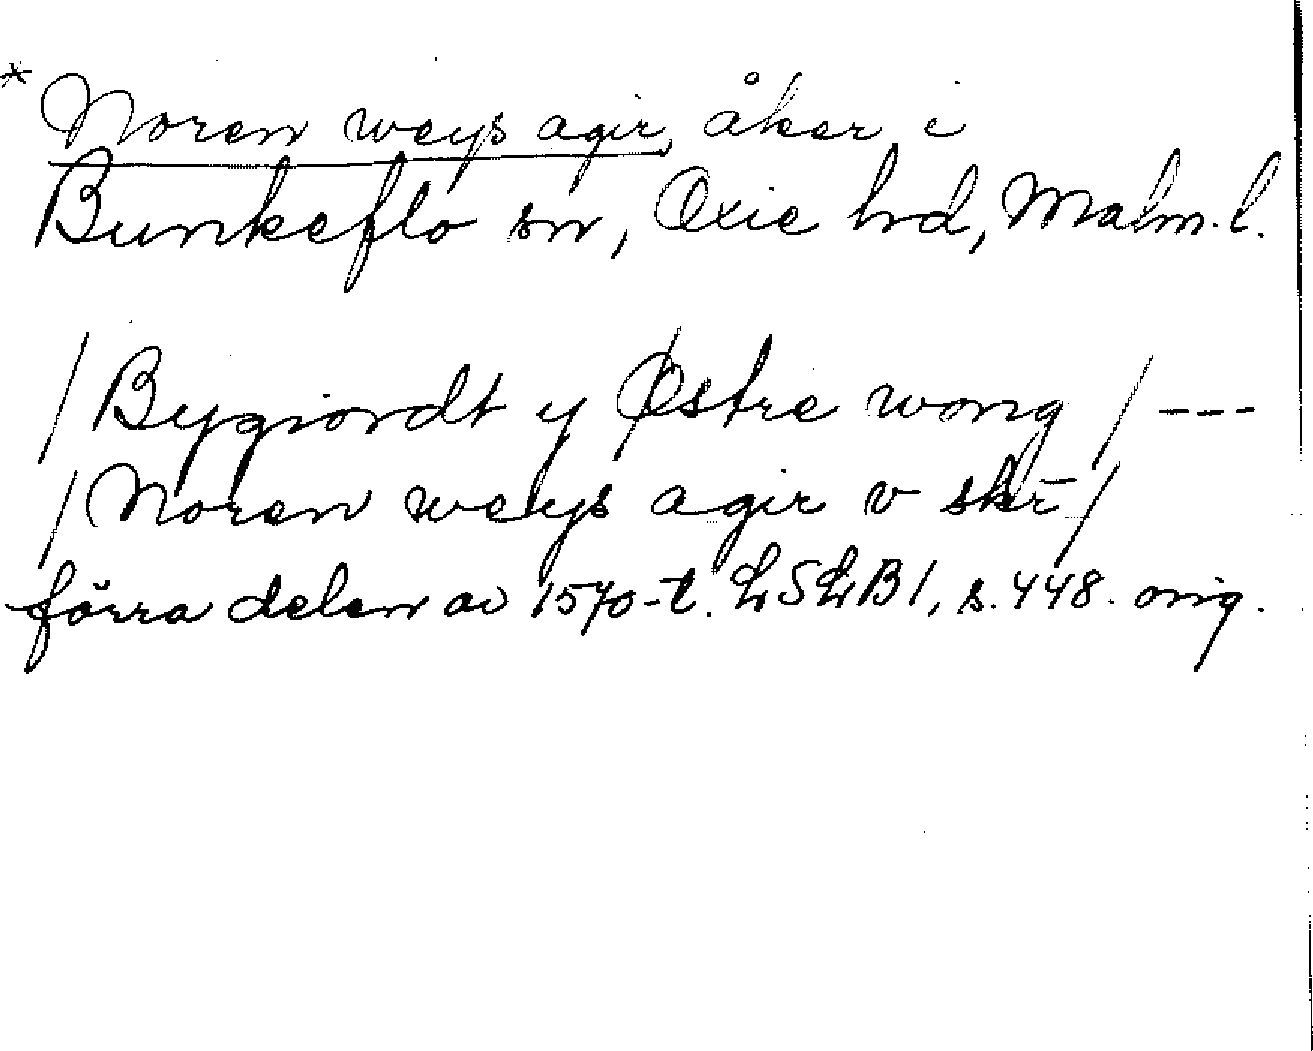 * Noren weys agir, åker i
Bunkeflo sn, Oxie hd, Malm. l.
/ Bygiordt y Østre wong / ---
/ Noren weys agir v skr /
förra delen av 1570-t. LSLB1, s. 448. orig.